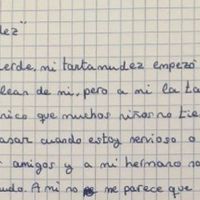 dez"
erde, mi tartamudez empezó
lear de mi, pero a mi la ta
nico que muchos niños no tie
asar cuando estoy nervioso o
amigos y a mi hermano no
udo. A mi no me parece que